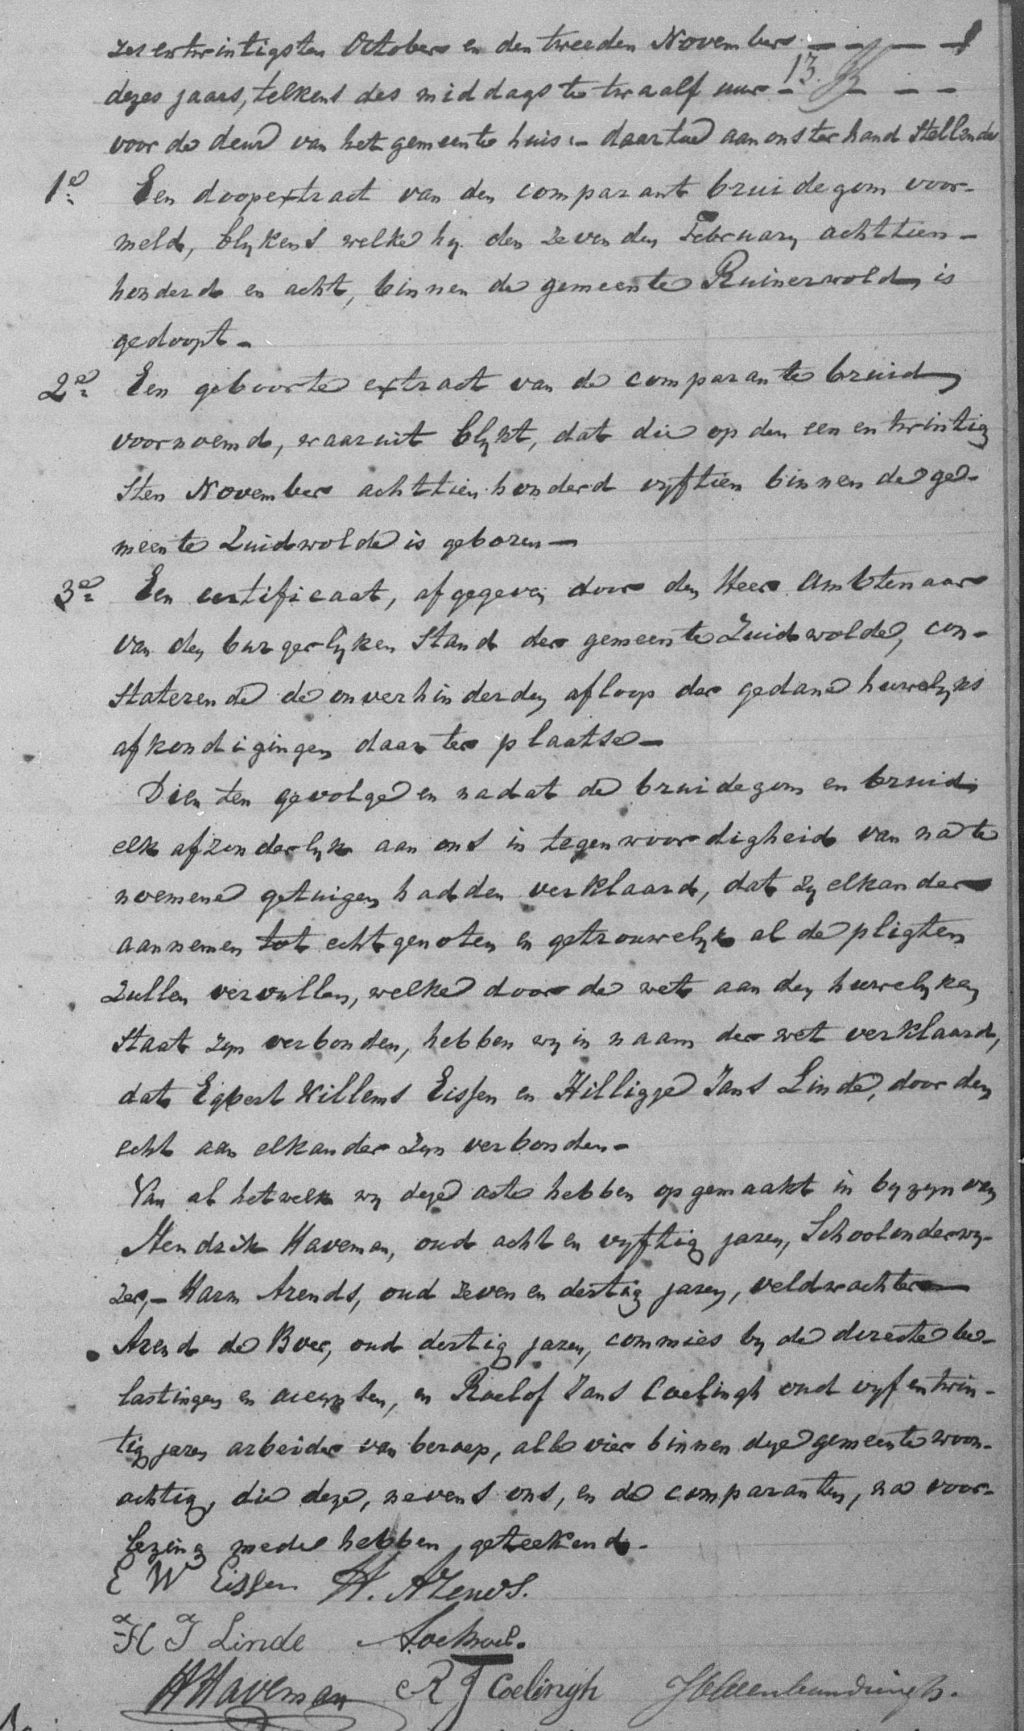 zes en twintigsten October en den tweeden November
dezes jaars, telkens des middags te twaalf uur 13.
voor de deur van het gemeente huis :- daartoe aan ons ter hand stellende
1e Een doopextract van den comparant bruidegom voor-
meld, blykens welke hy den zevenden February achttien-
honderd en acht, binnen de gemeente Ruinerwold is
gedoopt -
2e Een geboorte extract van de comparante bruid
voornoemd, waaruit blykt, dat die op den een en twintig
sten November achttien honderd vyftien binnen de ge-
meente Zuidwolde is geboren -
3e Een certificaat, afgegeven door den Heer Ambtenaar
van den burgerlyken Stand der gemeente Zuidwolde, con-
staterende de onverhinderden afloop der gedane huwelyks
afkondigingen daar ter plaatse -
Dien ten gevolge en nadat de bruidegom en bruid
elk afzonderlyk aan ons in tegenwoordigheid van na te
noemene getuigen hadden verklaard, dat zy elkander
aannemen tot echtgenoten en getrouwelyk al de pligten
zullen vervullen, welke door de wet aan den huwelyken
Staat zyn verbonden, hebben wy in naam der wet verklaard,
dat Egbert Willems Eissen en Hilligje Jans Linde, door den
echt aan elkander zyn verbonden -
Van al hetwelk wy deze acte hebben opgemaakt in byzyn van
Hendrik Haveman, oud acht en vyftig jaren, Schoolonderwy-
zer, - Harm Arends, oud zeven en dertig jaren, veldwachter
Arend de Boer, oud dertig jaren, commies by de directe be-
lastingen en accynsen, en Roelof Jans Coelingh oud vyf en twin-
tig jaren arbeider van beroep, alle vier binnen deze gemeente woon-
achtig, die deze, nevens ons, en de comparanten, na voor-
lezing mede hebben geteekend -
E W Eissen H. Arends.
H J Linde
H Haveman R J Coelingh